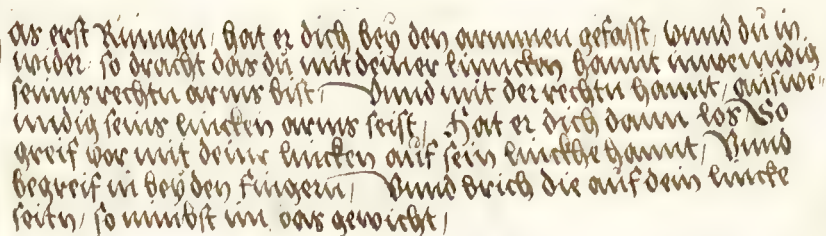 as erst Ringen, hat er dich bey den armmen gefasst, wund du in
wider so tracht das du mit deiner linncken hannt inwenndig
seinns rechtn arms bist, Vnnd mit der rechtn hannt, auswe-
nndig seins lincken arms seist, Hat er dich dann los So
greif vor mit deinr lincken auf sein linckhe hannt, Vnnd
begreif in bey den fingern, Vnnd brich die auf dein lincke
seitn, so nimbst im das gewicht,